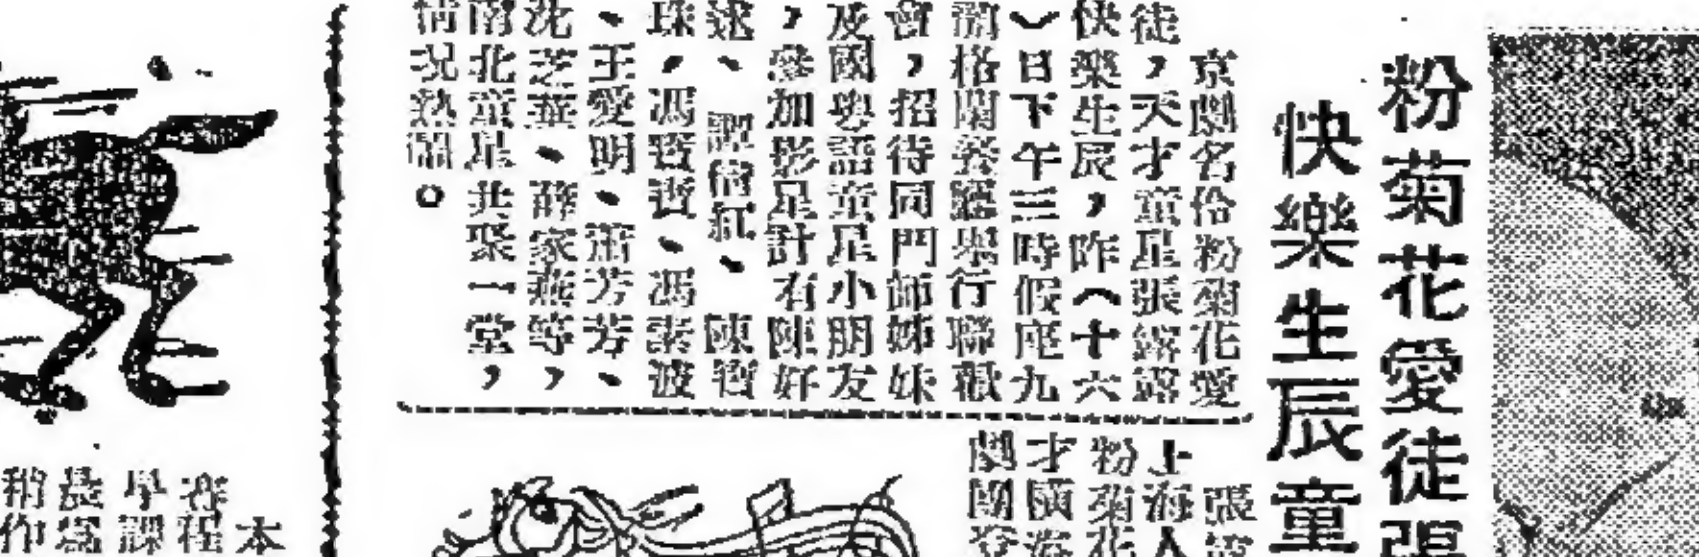 粉菊花愛徒張
快樂生辰童
京劇名伶粉菊花愛
徒，天才童星張露露
快樂生辰，昨（十六
）日下午三時假座九
龍格蘭餐廳舉行聯歡
會，招待同門師姊妹
及國粵語童星小朋友
，參加影星計有陳好
逑、譚倩紅、陳寶
珠，馮寶寶、馮素波
、王愛明、蕭芳芳、
沈芝華、薛家燕等，
南北童星共聚一堂，
情況熱鬧。
張
上海人
粉菊花
才廣
劇團
本
學課